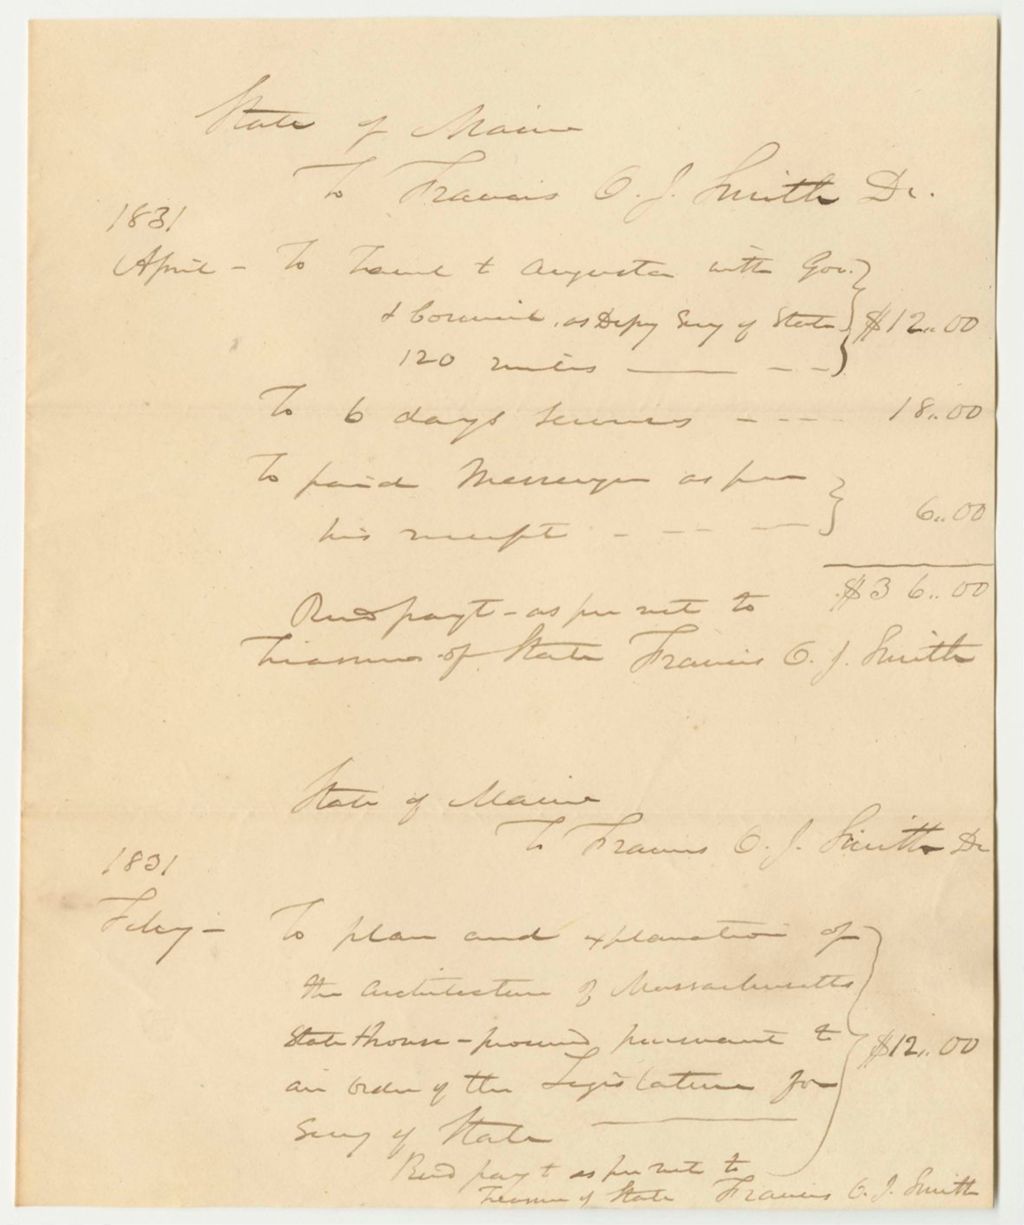 State of Maine
To Francis O. J. Smith Dr.
1831
April - To travel to Augusta with Gov.
& Council, as Depy Secy of State $12..00
120 miles
To 6 days services - - - - 18..00
To paid Messenger as per
his receipt - - - 6..00
$36..00
Recd payt - as per rect to
Treasurer of State Francis O. J. Smith
State of Maine
To Francis O. J. Smith Dr
1831
Feby - To plan and explanation of
the architecture of Massachusetts
State house - procured pursuant to $12..00
an order of the Legislature for
Secy of State
Recd payt as per rect to
Treasurer of State Francis O. J. Smith